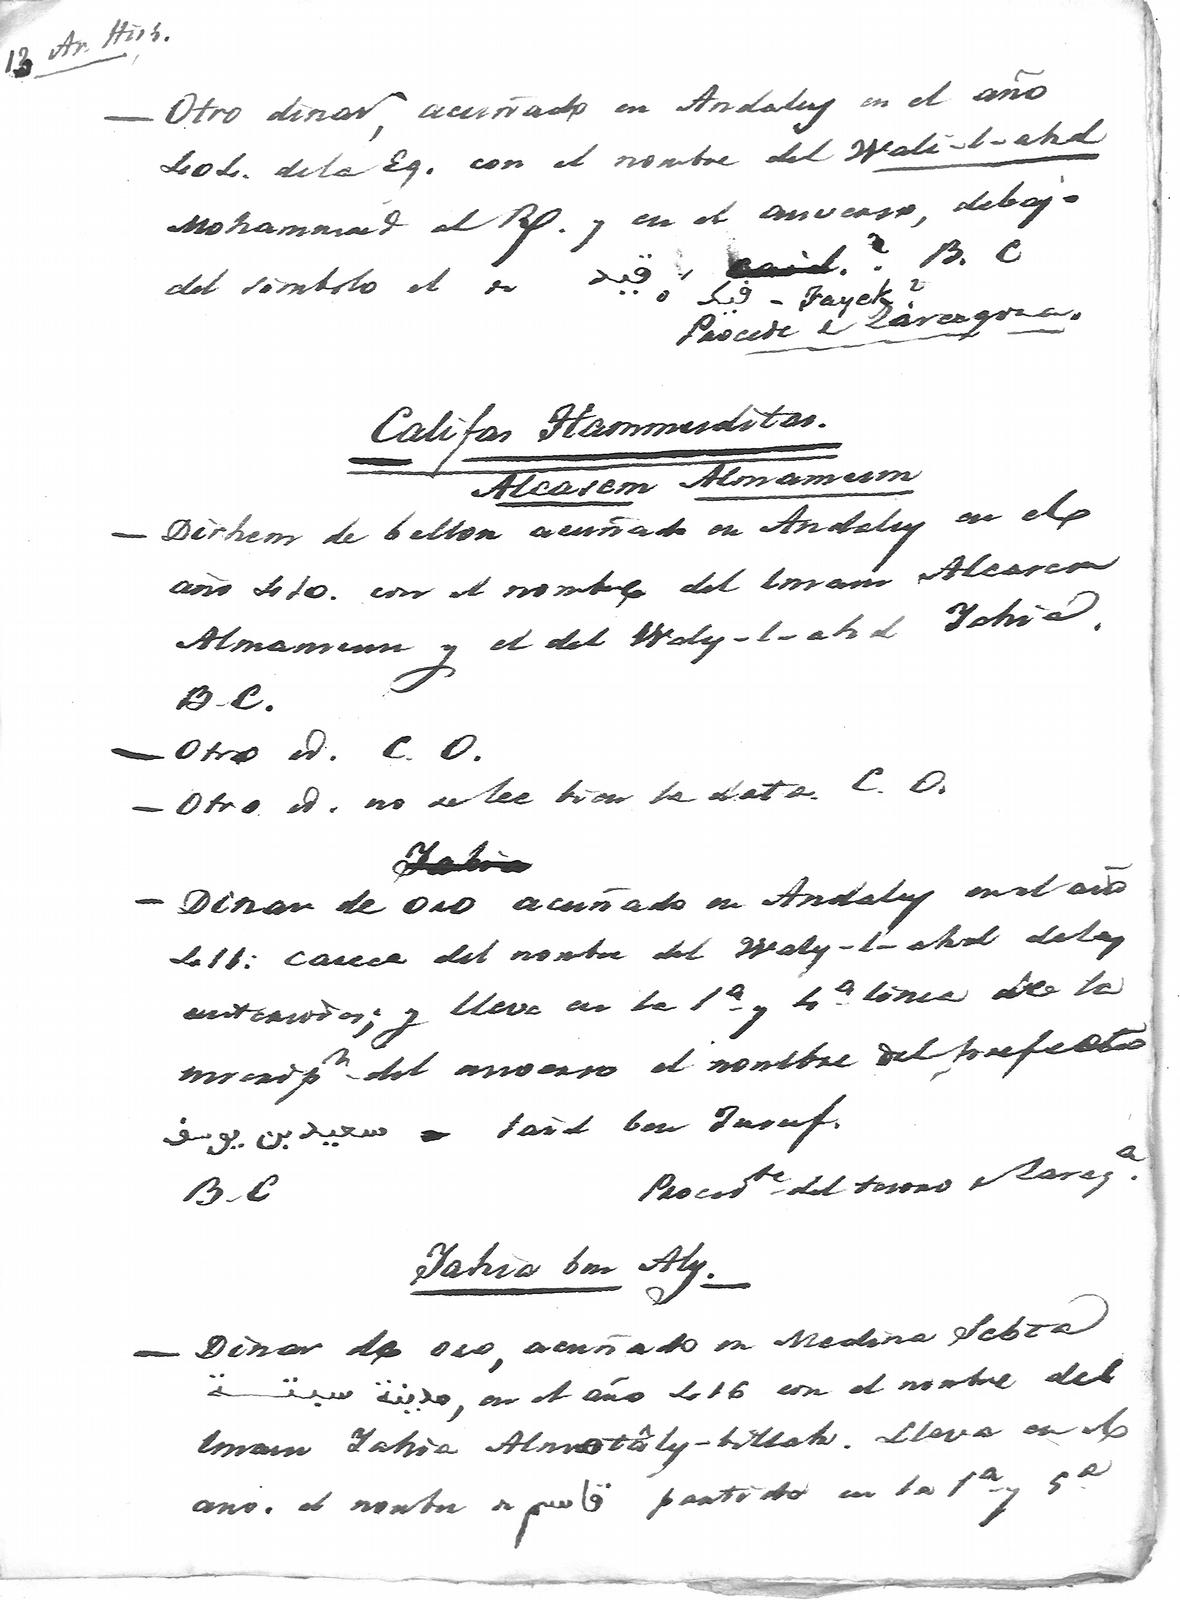 13 Ar. His.
— Otro dinar, acuñado en Andaluy en el año
404. de la Eg. con el nombre del Wali-l-ahd
Mohammad el y en el anverso, debajo
del símbolo el de قيد ? B. C
فيك - Fayek?
Procede de Zaragoza.
Califas Hammuditas.
Alcasem Almamun
— Dirhem de bellon acuñado en Andaluy en el
año 410. con el nombre del Imam Alcasem
Almamun y el del Waly-l-ahd Iahia.
B-C.
— Otro id. C. O.
— Otro id. no se lee bien la data. C. O.
Iahia
— Dinar de oro acuñado en Andaluy en el año
411: carece del nombre del Waly-l-ahd de las
anteriores; y lleva en la 1ª y 4ª linea de la
inscripn del anverso el nombre del prefecto
سعيد بن يوسف = Said ben Iusuf.
B-C Procedte del tesoro de Zaragª.
Iahia ben Aly.
— Dinar de oro, acuñado en Medina Sebta
مدينة سبتة, en el año 416 con el nombre del
Imam Iahia Almotâly-billah. Lleva en el
anv. el nombre de قاسم partido en la 1ª y 5ª